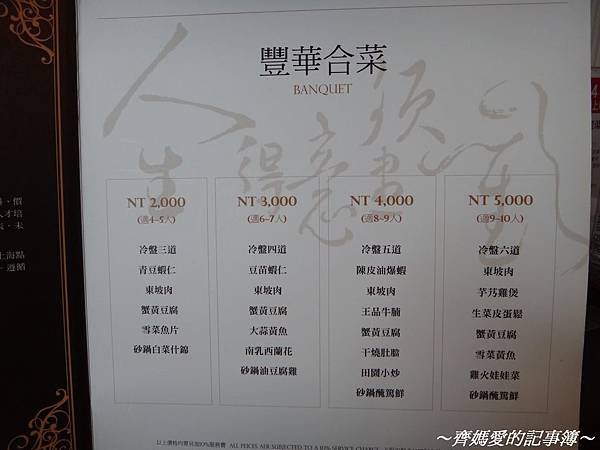 豐華合菜
BANQUET
人生得意須盡歡
NT 2,000
(適4-5人)
冷盤三道
青豆蝦仁
東坡肉
蟹黃豆腐
雪菜魚片
砂鍋白菜什錦
NT 3,000
(適6-7人)
冷盤四道
豆苗蝦仁
東坡肉
蟹黃豆腐
大蒜黃魚
南乳西蘭花
砂鍋油豆腐雞
NT 4,000
(適8-9人)
冷盤五道
陳皮油爆蝦
東坡肉
王品牛腩
蟹黃豆腐
干燒肚膾
田園小炒
砂鍋醃篤鮮
NT 5,000
(適9-10人)
冷盤六道
東坡肉
芋艿雞煲
生菜皮蛋鬆
蟹黃豆腐
雪菜黃魚
雞火娃娃菜
砂鍋醃篤鮮
以上價格均需另加10%服務費 ALL PRICES ARE SUBJECTED TO A 10% SERVICE CHARGE
～齊媽愛的記事簿～